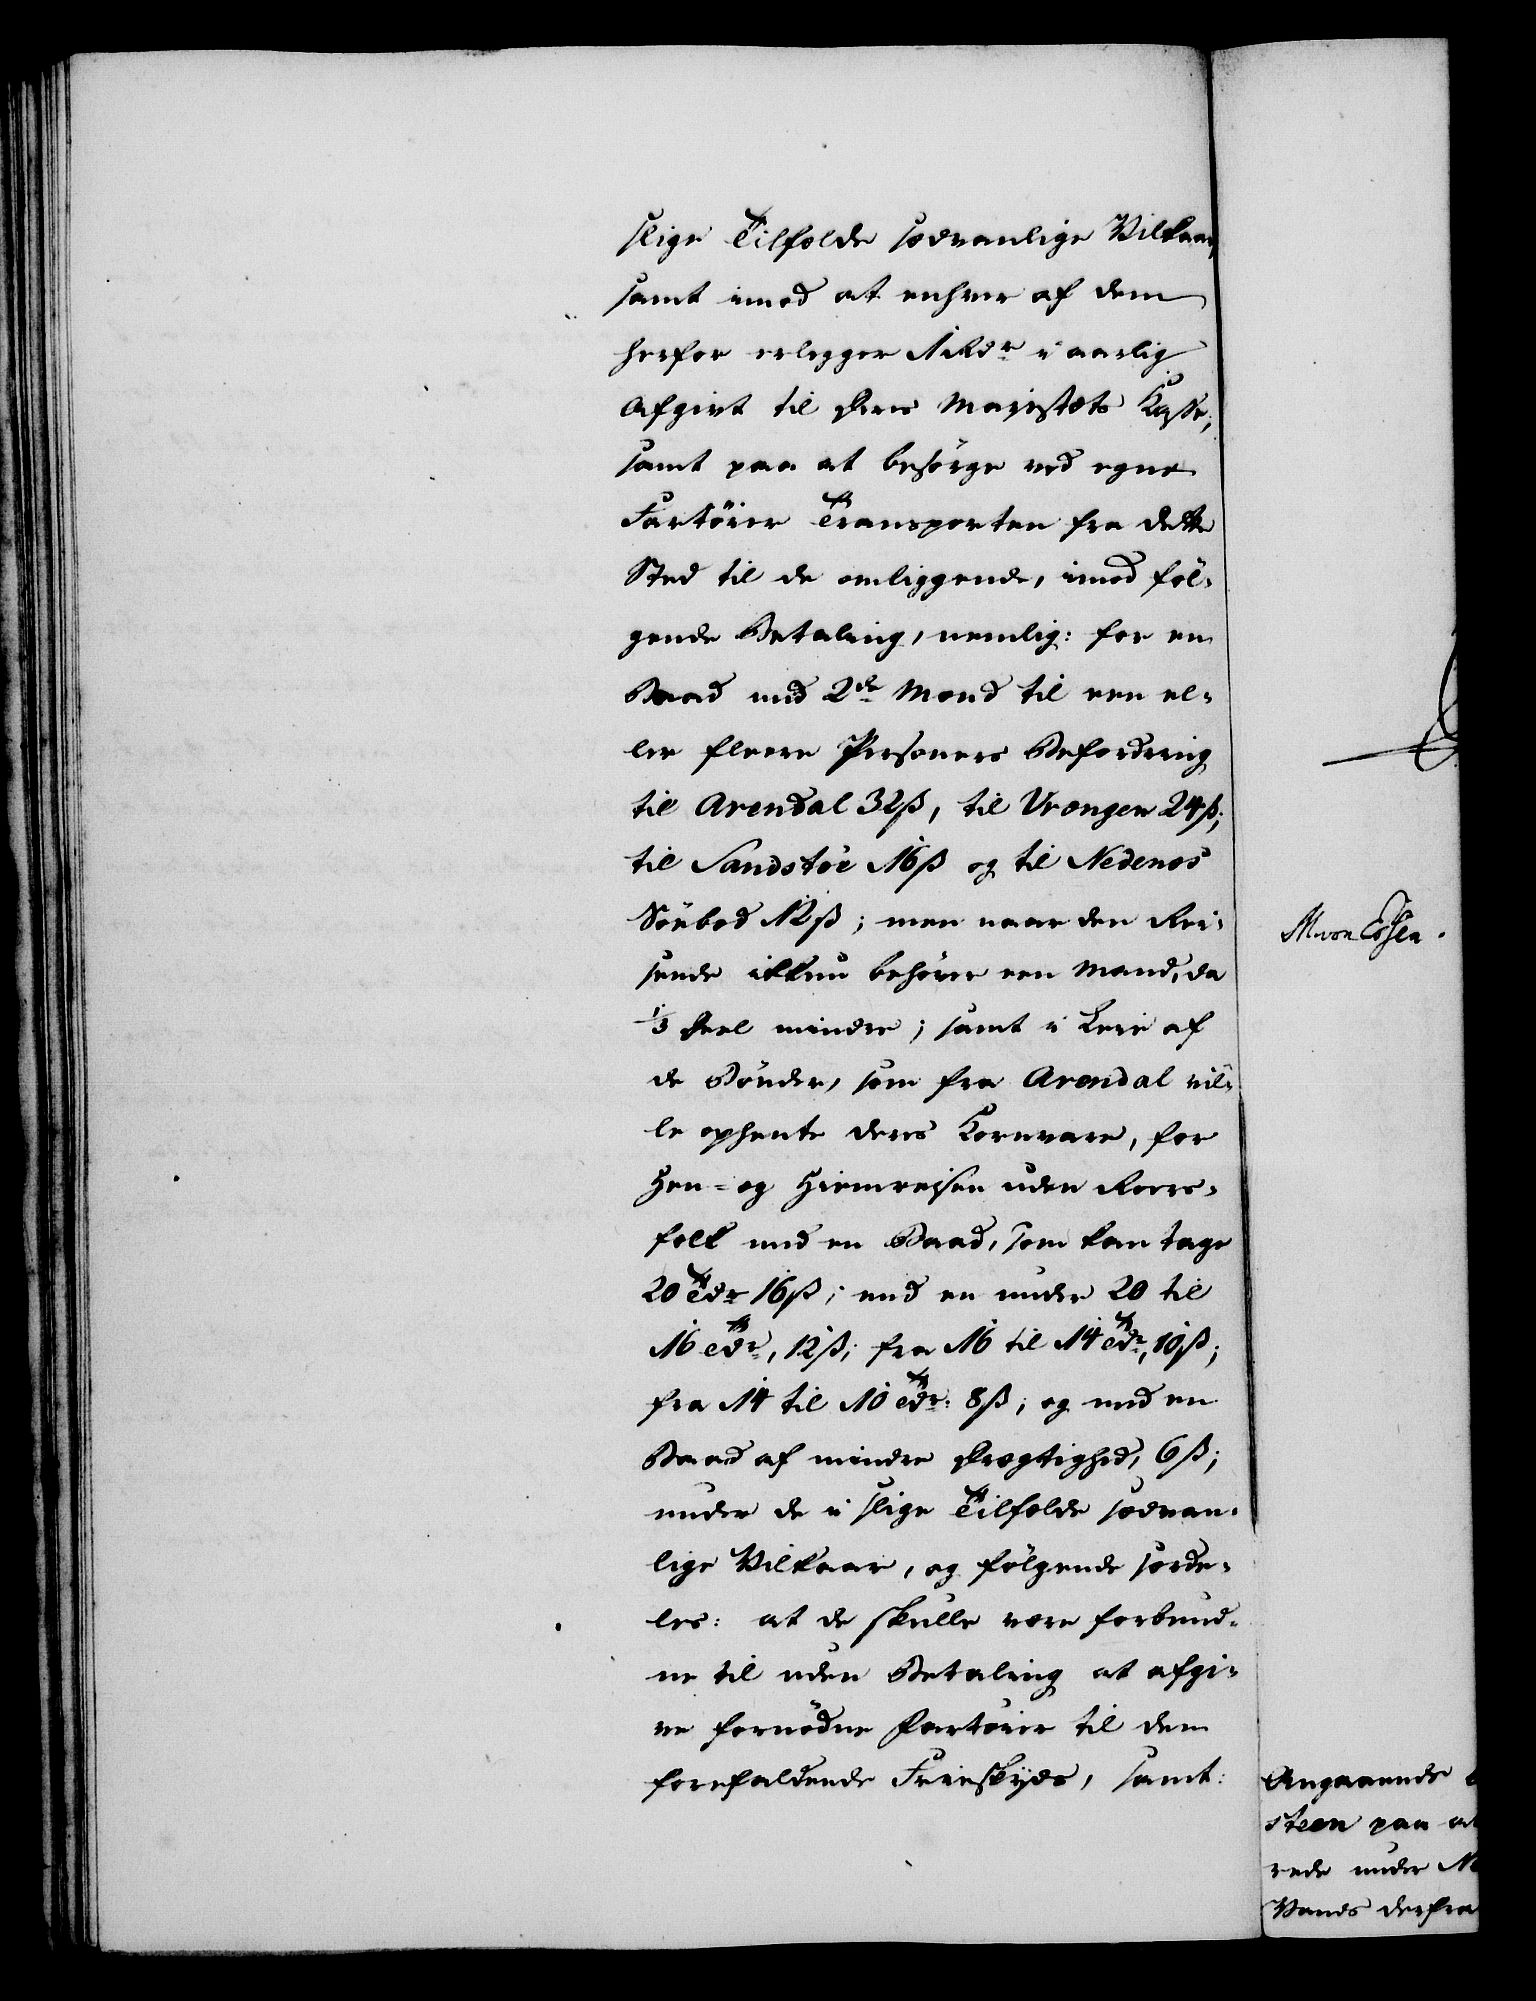 slige Tilfælde sædvanlige Vilkaar,
samt imod at enhver af dem
herfor erlegger 1 Rdr i aarlig
Afgivt til Deres Majestæts Kasse;
samt paa at besörge ved egne
Fartöier Transporten fra dette
Sted til de omliggende, imod föl-
gende Betaling, nemlig: for en
Baad med 2de Mænd til een el-
ler fleere Personers Befordring
til Arendal 32 ß, til Vrængen 24 ß;
til Sandstöe 16 ß og til Nedenæs
Söebod 12 ß; men naar den Rei-
sende ikkun behöver een Mand, da
1/3 Deel mindre; samt i Leie af
de Bönder, som fra Arendal vil-
le ophente deres Kornvare, for
Hen- og Hiemreisen uden Roers-
folk med en Baad, som kan tage
20 Tdr 16 ß; med en under 20 til
16 Tdr, 12 ß; fra 16 til 14 Tdr, 10 ß;
fra 14 til 10 Tdr: 8 ß; og med en
Baad af mindre Drægtighed, 6 ß;
under de i slige Tilfælde sædvan-
lige Vilkaar, og fölgende særde-
les: at de skulle være forbund-
ne til uden Betaling at afgi-
ve fornödne Fartöier til den
forefaldende Frieskyds, samt
M von Essen.
Angaaende
steen paa
rede under
Vands derfra